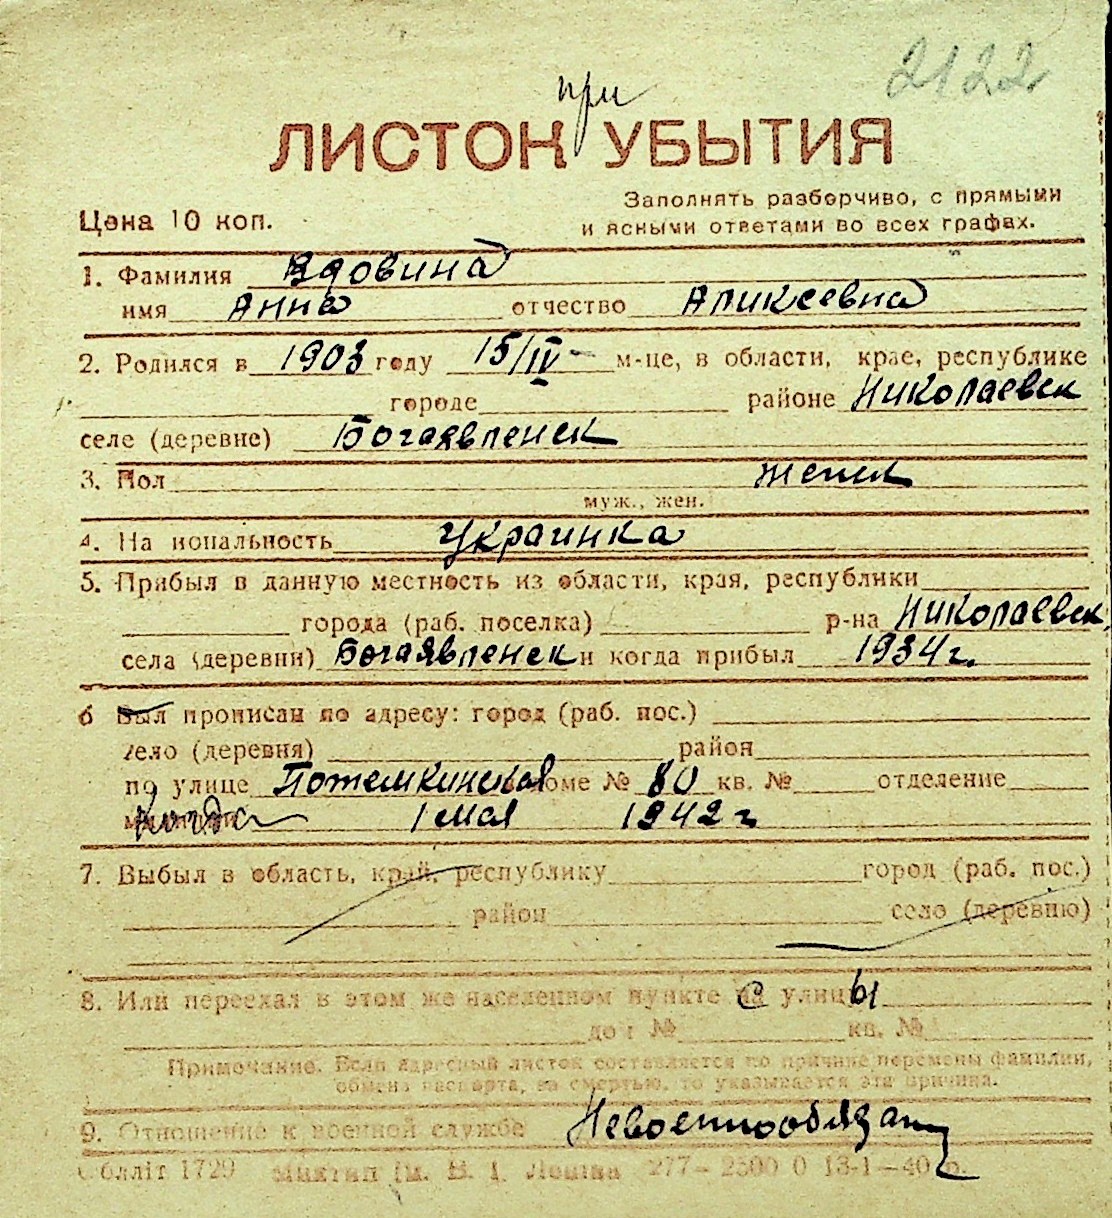 2122
при
ЛИСТОК УБЫТИЯ
Цена 10 коп.
Заполнять разборчиво, с прямыми
и ясными ответами во всех графах.
1. Фамилия Вдовина
имя Анна отчество Аликсеевна
2. Родился в 1903 году 15/IV- м-це, в области, крае, республике
городе районе Николаевск
селе (деревне) Богаявленск
3. Пол женск
муж., жен.
4. На иональность Украинка
5. Прибыл в данную местность из области, края, республики
города (раб. поселка) р-на Николаевск,
села (деревни) Богаявленск и когда прибыл 1934 г.
6 Был прописан по адресу: город (раб. пос.)
село (деревня) район
по улице Потемкинская доме № 80 кв. № отделение
когда 1 мая 1942 г
7. Выбыл в область, край, республику город (раб. пос.)
район село (деревню)
8. Или переехал в этом же населенном пункте с улицы
дом № кв. №
Примечание. Если адресный листок составляется по причине перемены фамилии,
обмена паспорта, за смертью, то указывается эта причина.
9. Отношение к военной службе Невоеннообязан
Облліт 1729 им. В. І. Леніна 277— 2500 0 13-1—40 р.